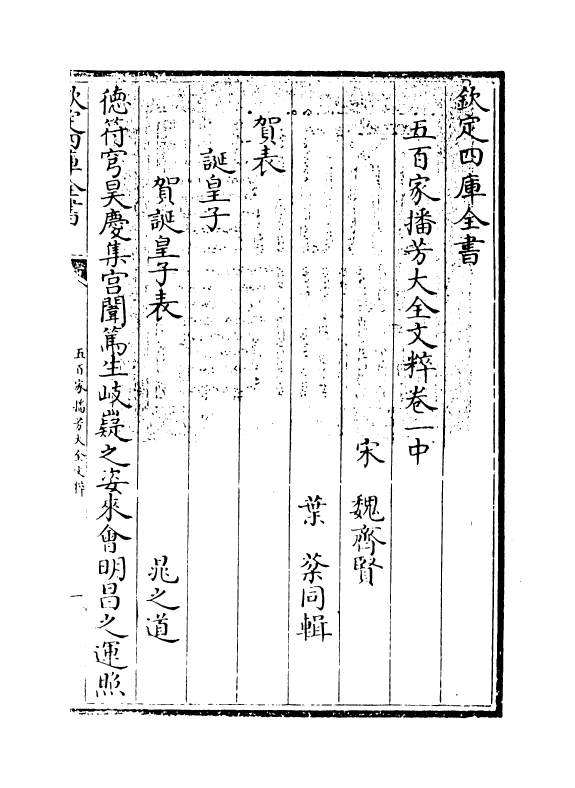 欽定四庫全書
五百家播芳大全文粹卷一中
宋 魏齊賢
葉棻同輯
賀表
誕皇子
賀誕皇子表 晁之道
德符穹昊慶集宫闈篤生岐嶷之姿來會明昌之運照
欽定四庫全書
五百家播芳大全文粹
一